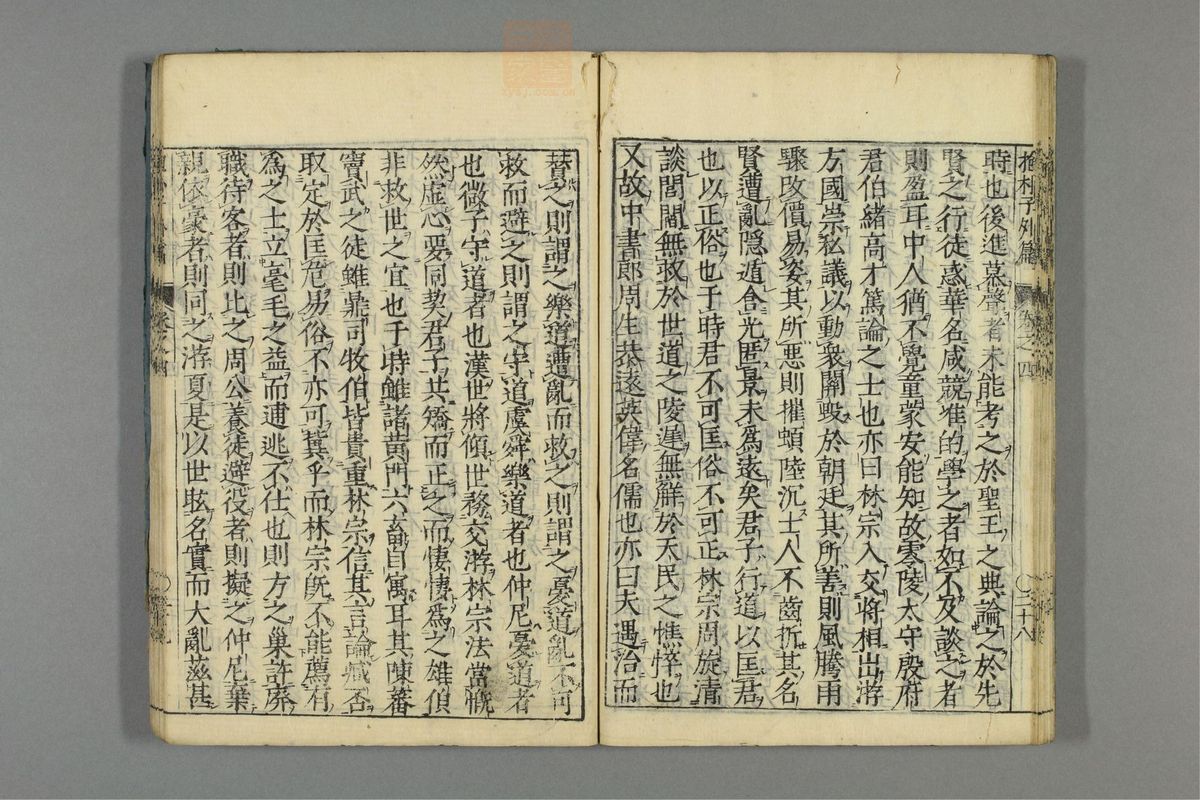 抱朴子外篇　卷之四　〇三十八
時也後進慕聲者未能考之於聖王之典論之於先
賢之行徒惑華名咸競准的學之者如不及談之者
則盈耳中人猶不覺童蒙安能知故零陵太守殷府
君伯緒高才篤論之士也亦曰林宗入交將相出游
方國崇私議以動衆關毀於朝廷其所善則風騰雨
驟改價易姿其所惡則摧頓陸沉士人不齒折其名
賢遭亂隱遁含光匿景未爲遠矣君子行道以匡君
也以正俗也于時君不可匡俗不可正林宗周旋清
談閭閻無救於世道之陵遲無觧於天民之憔悴也
又故中書郎周生恭遠英偉名儒也亦曰夫遇治而
賛之則謂之樂道遭亂而救之則謂之憂道亂不可
救而避之則謂之守道虞舜樂道者也仲尼憂道者
也微子守道者也漢世將傾世務交游林宗法當慨
然虚心要同契君子共矯而正之而悽悽爲之雄傎
非救世之宜也于時雖諸黄門六畜自寓耳其陳蕃
竇武之徒雖鼎司牧伯皆貴重林宗信其言論臧否
取定於匡危易俗不亦可冀乎而林宗旣不能薦有
爲之士立毫毛之益而逋逃不仕也則方之巢許廢
職待客者則比之周公養徒避役者則擬之仲尼棄
親依豪者則同之游夏是以世眩名實而大亂滋甚